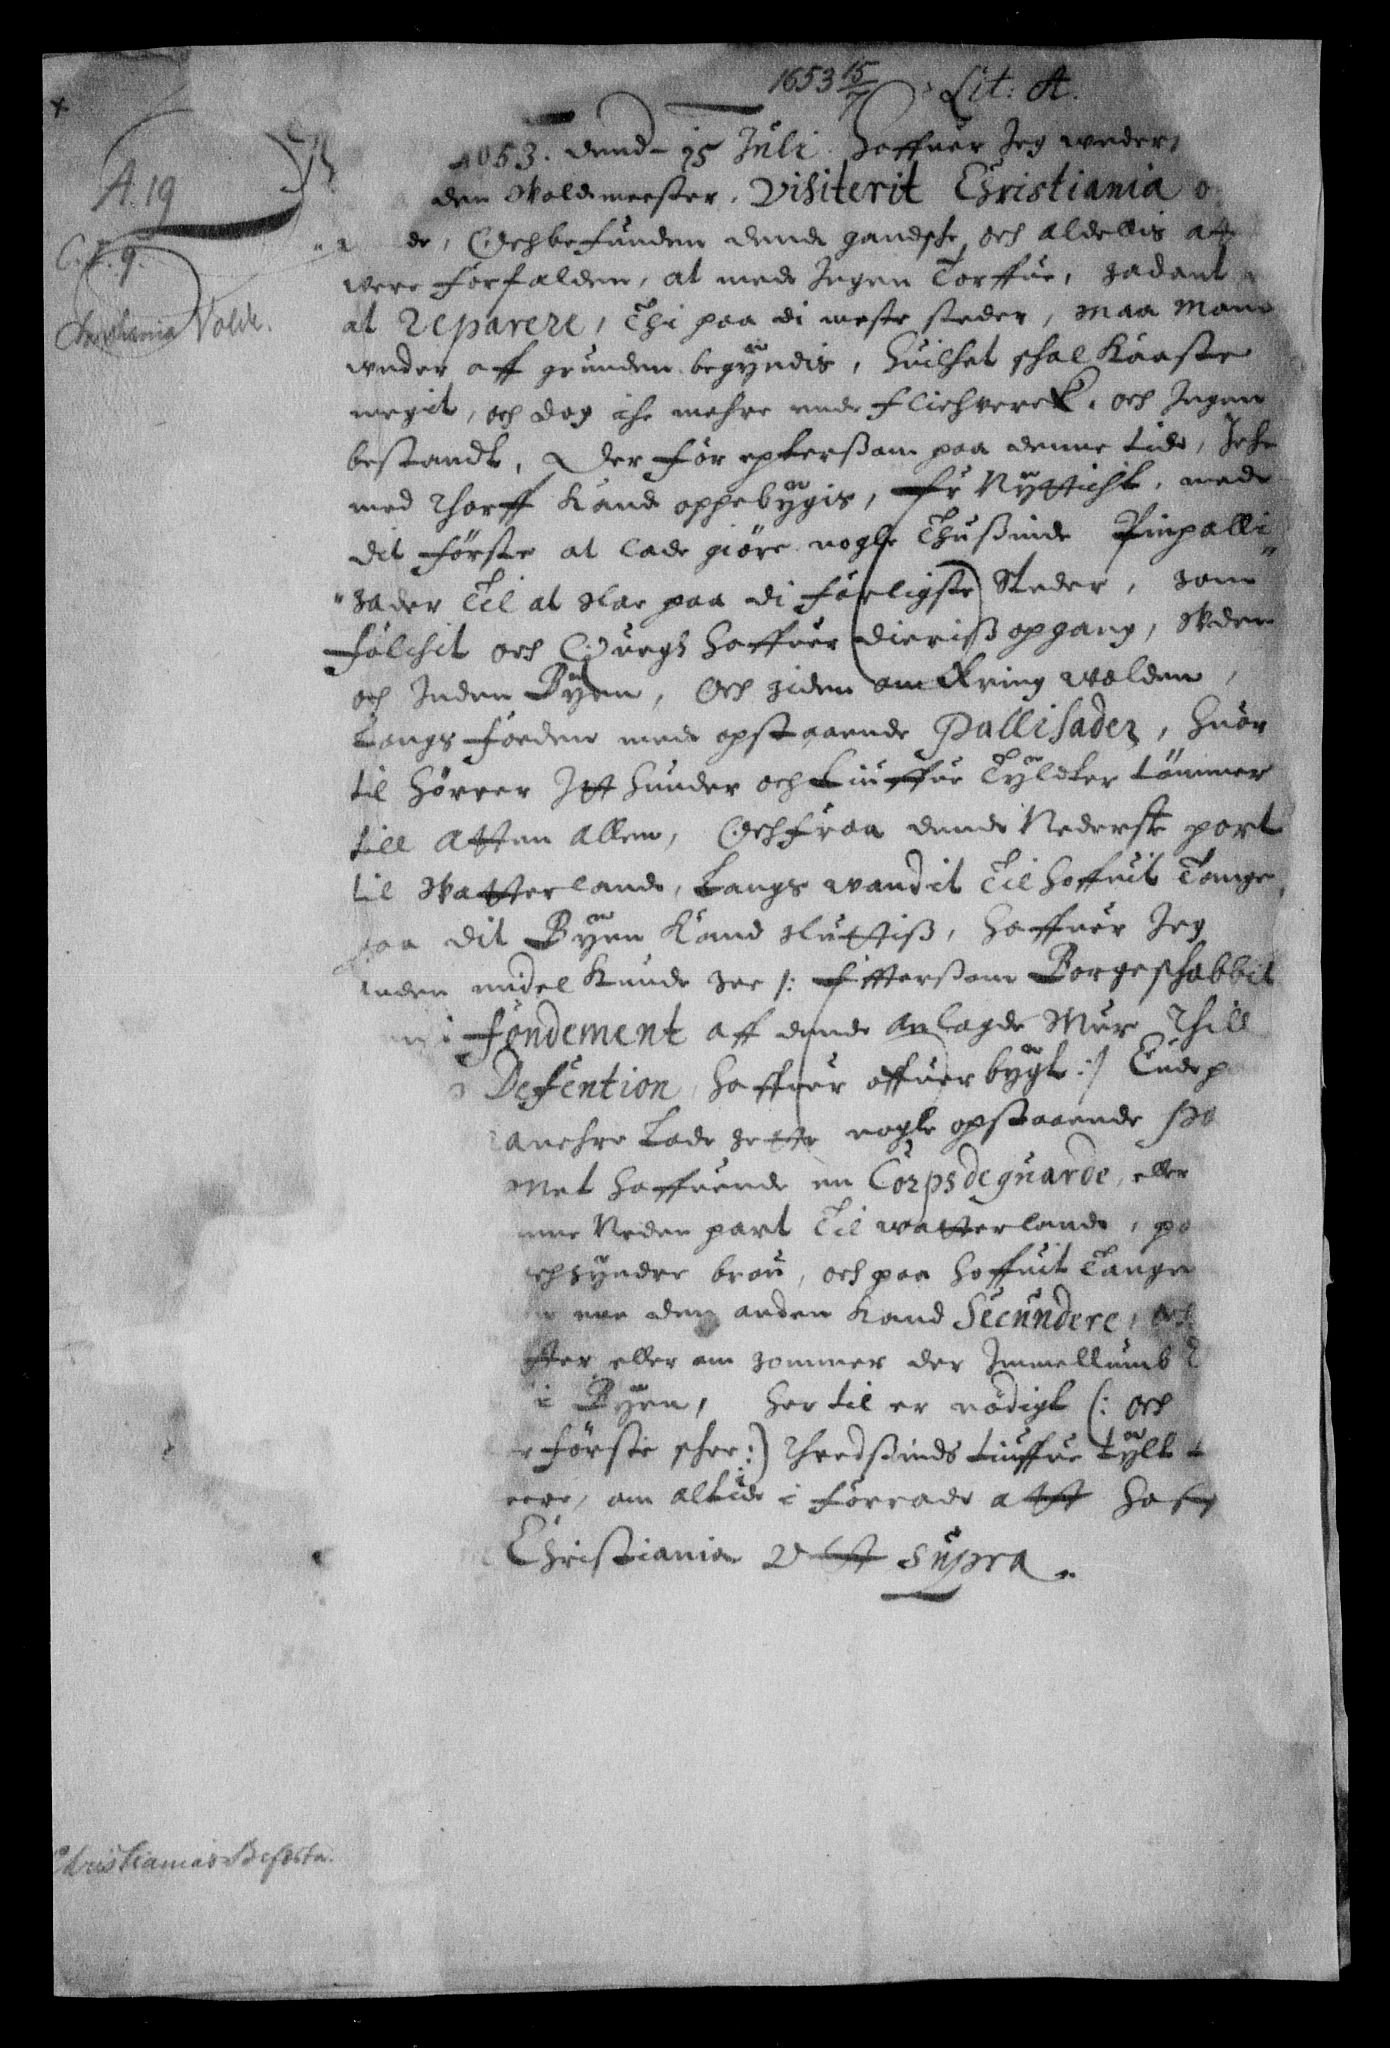 1653 15/7 Lit: A.
A. 19
C. F. 9.
Christiania Volde.
1653. dend 15 Juli. Haffuer Jeg under
den Woldmeester, Visiterit Christiania
de, Och befunden dend gandske och aldellis at
were forfalden, at med Ingen Torffue, sadant
at Reparere, Thi paa di meste steder, maa Mand
under aff grunden begyndis, huilchet schal Kaaste
megit, och dog iche mehre end Flichverck, och Ingen
bestandt, Derfor epterßom paa denne tid, Iche
med Thorff Kand opbebygis, Er Nyttigst, med
dit Første at lade giøre nogle Thusinde Pinpalli-
sader Til at slae paa di farligste Steder, som
Folchit och Quegh haffuer dieriß opgang, Uden
och Inden Byen, Och siden omkring wolden,
Langs Foeden med opstaaende Pallisader, huor
til hørrer Itt hunder och tiuffue Tylter tømmer
till Atten Allen, Och fraa dend Nederste port
til Watterland, Langs wandit Til hoffuit Tange,
paa dit Byen Kand sluttiß, haffuer Jeg
anden middel Kunde see /: Efftersom Borgeschabbit
Fondement aff dend anlagde Mur Thill
Defention, haffuer offuerbygt :/ End
lade sette nogle opstaaende
Met haffuende en Corps de guarde, eller
Neder port Til watterland,
søndre broe, och paa hoffuit Tange
ene den anden Kand Secundere, och
eller om sommer der Jmmellumb
i Byen, her til er nødigt (: och
første schee :) Thredsinds tiuffue tylt
were, om altid i Forraad att haffue
Christiania Ut Supra.
Christianias Befæstn.